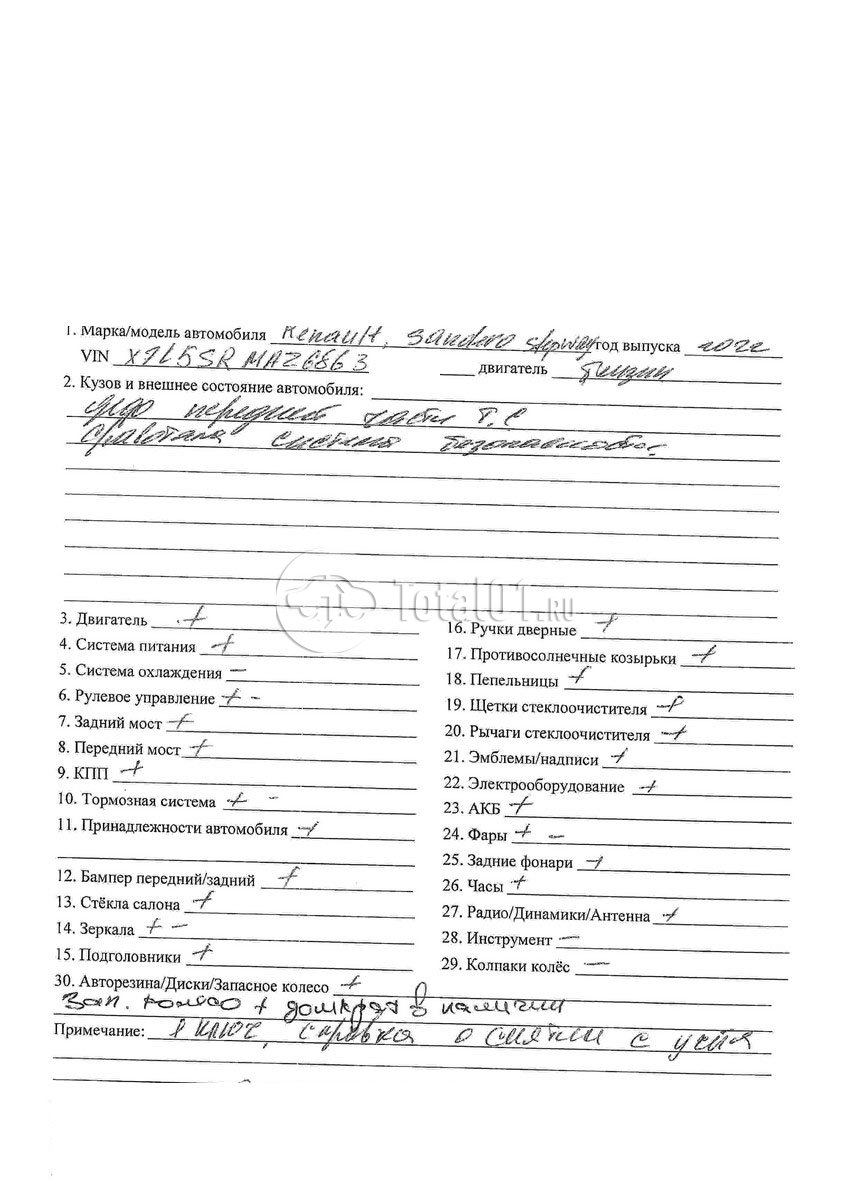 1. Марка/модель автомобиля Renault, Sandero Stepway год выпуска 2022
VIN X7L5SRMAZ6863 двигатель бензин
2. Кузов и внешнее состояние автомобиля:
передней части Т.С
сработала система безопасности.
Total01.RU
3. Двигатель +
4. Система питания +
5. Система охлаждения –
6. Рулевое управление + -
7. Задний мост +
8. Передний мост +
9. КПП +
10. Тормозная система + -
11. Принадлежности автомобиля +
12. Бампер передний/задний +
13. Стёкла салона +
14. Зеркала + –
15. Подголовники +
16. Ручки дверные +
17. Противосолнечные козырьки +
18. Пепельницы +
19. Щетки стеклоочистителя +
20. Рычаги стеклоочистителя +
21. Эмблемы/надписи +
22. Электрооборудование +
23. АКБ +
24. Фары + –
25. Задние фонари +
26. Часы +
27. Радио/Динамики/Антенна +
28. Инструмент –
29. Колпаки колёс –
30. Авторезина/Диски/Запасное колесо +
Зап. колесо + домкрат в наличии
Примечание: 1 ключ, справка о снятии с учёта